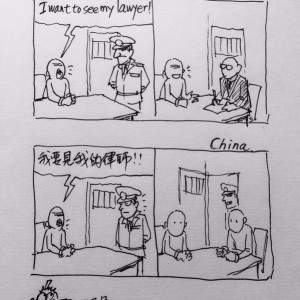 I want to see my lawyer!
China
我要见我的律师!!